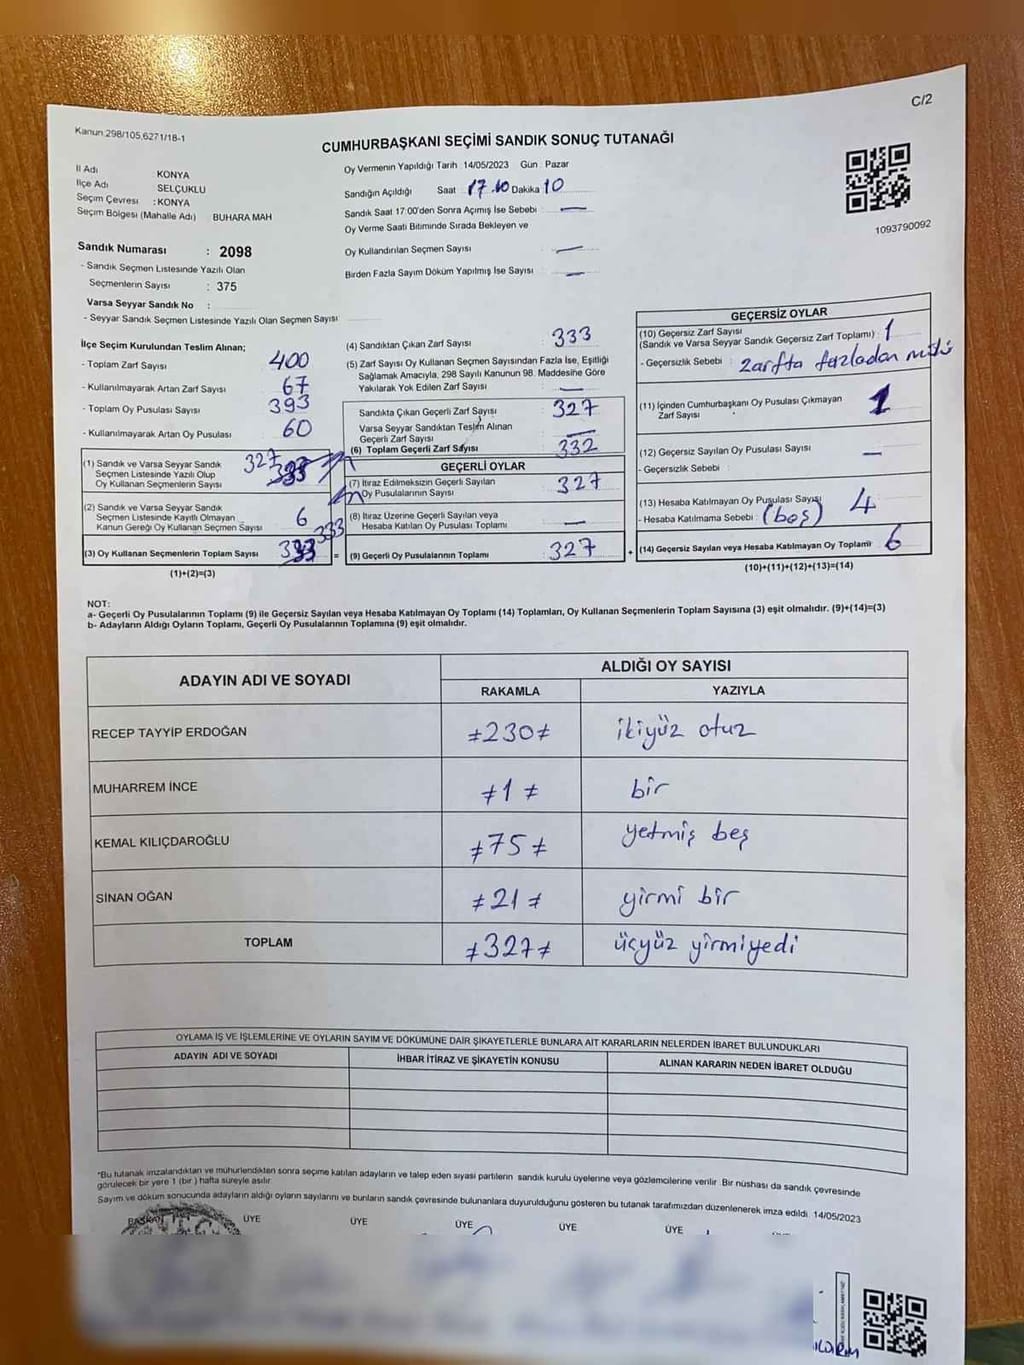 C/2
Kanun.298/105,6271/18-1
CUMHURBAŞKANI SEÇİMİ SANDIK SONUÇ TUTANAĞI
İl Adı KONYA
İlçe Adı SELÇUKLU
Seçim Çevresi : KONYA
Seçim Bölgesi (Mahalle Adı) BUHARA MAH
Sandık Numarası : 2098
- Sandık Seçmen Listesinde Yazılı Olan
Seçmenlerin Sayısı : 375
Varsa Seyyar Sandık No :
- Seyyar Sandık Seçmen Listesinde Yazılı Olan Seçmen Sayısı
Oy Vermenin Yapıldığı Tarih : 14/05/2023 Gün : Pazar
Sandığın Açıldığı Saat 17.10 Dakika 10
Sandık Saat 17:00'den Sonra Açımış İse Sebebi : —
Oy Verme Saati Bitiminde Sırada Bekleyen ve
Oy Kullandırılan Seçmen Sayısı —
Birden Fazla Sayım Döküm Yapılmış İse Sayısı : —
1093790092
İlçe Seçim Kurulundan Teslim Alınan;
- Toplam Zarf Sayısı : 400
- Kullanılmayarak Artan Zarf Sayısı : 67
- Toplam Oy Pusulası Sayısı : 393
- Kullanılmayarak Artan Oy Pusulası : 60
(1) Sandık ve Varsa Seyyar Sandık
Seçmen Listesinde Yazılı Olup
Oy Kullanan Seçmenlerin Sayısı 327 333
(2) Sandık ve Varsa Seyyar Sandık
Seçmen Listesinde Kayıtlı Olmayan
Kanun Gereği Oy Kullanan Seçmen Sayısı 6
(3) Oy Kullanan Seçmenlerin Toplam Sayısı 333 333 =
(1)+(2)=(3)
(4) Sandıktan Çıkan Zarf Sayısı : 333
(5) Zarf Sayısı Oy Kullanan Seçmen Sayısından Fazla İse, Eşitliği
Sağlamak Amacıyla, 298 Sayılı Kanunun 98. Maddesine Göre
Yakılarak Yok Edilen Zarf Sayısı : —
Sandıkta Çıkan Geçerli Zarf Sayısı : 327
Varsa Seyyar Sandıktan Teslim Alınan
Geçerli Zarf Sayısı —
(6) Toplam Geçerli Zarf Sayısı : 332
GEÇERLİ OYLAR
(7) İtiraz Edilmeksizin Geçerli Sayılan
Oy Pusulalarının Sayısı : 327
(8) İtiraz Üzerine Geçerli Sayılan veya
Hesaba Katılan Oy Pusulası Toplamı : —
(9) Geçerli Oy Pusulalarının Toplamı : 327 +
GEÇERSİZ OYLAR
(10) Geçersiz Zarf Sayısı
(Sandık ve Varsa Seyyar Sandık Geçersiz Zarf Toplamı) : 1
- Geçersizlik Sebebi : zarfta fazladan mühü
(11) İçinden Cumhurbaşkanı Oy Pusulası Çıkmayan
Zarf Sayısı 1
(12) Geçersiz Sayılan Oy Pusulası Sayısı —
- Geçersizlik Sebebi :
(13) Hesaba Katılmayan Oy Pusulası Sayısı 4
- Hesaba Katılmama Sebebi : (boş)
(14) Geçersiz Sayılan veya Hesaba Katılmayan Oy Toplamı : 6
(10)+(11)+(12)+(13)=(14)
NOT:
a- Geçerli Oy Pusulalarının Toplamı (9) ile Geçersiz Sayılan veya Hesaba Katılmayan Oy Toplamı (14) Toplamları, Oy Kullanan Seçmenlerin Toplam Sayısına (3) eşit olmalıdır. (9)+(14)=(3)
b- Adayların Aldığı Oyların Toplamı, Geçerli Oy Pusulalarının Toplamına (9) eşit olmalıdır.
ADAYIN ADI VE SOYADI ALDIĞI OY SAYISI
RAKAMLA YAZIYLA
RECEP TAYYİP ERDOĞAN ≠230≠ ikiyüz otuz
MUHARREM İNCE ≠1≠ bir
KEMAL KILIÇDAROĞLU ≠75≠ yetmiş beş
SİNAN OĞAN ≠21≠ yirmi bir
TOPLAM ≠327≠ üçyüz yirmiyedi
OYLAMA İŞ VE İŞLEMLERİNE VE OYLARIN SAYIM VE DÖKÜMÜNE DAİR ŞİKAYETLERLE BUNLARA AİT KARARLARIN NELERDEN İBARET BULUNDUKLARI
ADAYIN ADI VE SOYADI İHBAR İTİRAZ VE ŞİKAYETİN KONUSU ALINAN KARARIN NEDEN İBARET OLDUĞU
*Bu tutanak imzalandıktan ve mühürlendikten sonra seçime katılan adayların ve talep eden siyasi partilerin sandık kurulu üyelerine veya gözlemcilerine verilir. Bir nüshası da sandık çevresinde
görülecek bir yere 1 (bir) hafta süreyle asılır.
Sayım ve döküm sonucunda adayların aldığı oyların sayılarını ve bunların sandık çevresinde bulunanlara duyurulduğunu gösteren bu tutanak tarafımızdan düzenlenerek imza edildi. 14/05/2023
BAŞKAN ÜYE ÜYE ÜYE ÜYE ÜYE